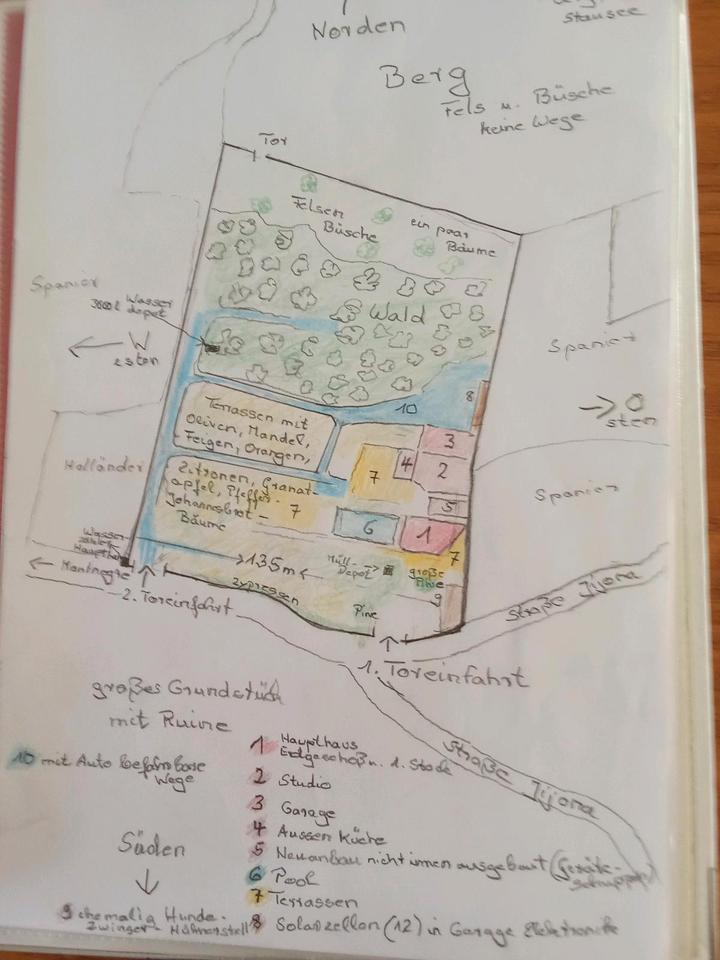 Norden
stausee
Berg
Fels u. Büsche
keine Wege
Tor
Felsen
Büsche
ein paar
Bäume
Wald
Spanier
3000 l Wasser
depot
W
esten
Spanier
O
sten
8
10
Terrassen mit
Oliven, Mandel,
Feigen, Orangen,
3
7
4
2
Holländer
Zitronen, Granat-
apfel, Pfeffer-
Johannesbrot-
Bäume
7
5
Spanier
6
1
7
Wasser-
Haupthan
Montnegre
135m
Müll-
Depot
große
Pinie
9
2. Toreinfahrt
Zypressen
Pine
Straße Jijona
1. Toreinfahrt
großes Grundstück
mit Ruine
Straße Jijona
10 mit Auto befahrbare
Wege
1 Haupthaus
Erdgeschoß u. 1. Stock
2 Studio
3 Garage
4 Aussen Küche
5 Neuanbau nicht innen ausgebaut (Geräte-
schuppen)
6 Pool
7 Terrassen
8 Solarzellen (12) in Garage Elektronik
Süden
9 ehemalig Hunde-
Zwinger - Hühnerstell